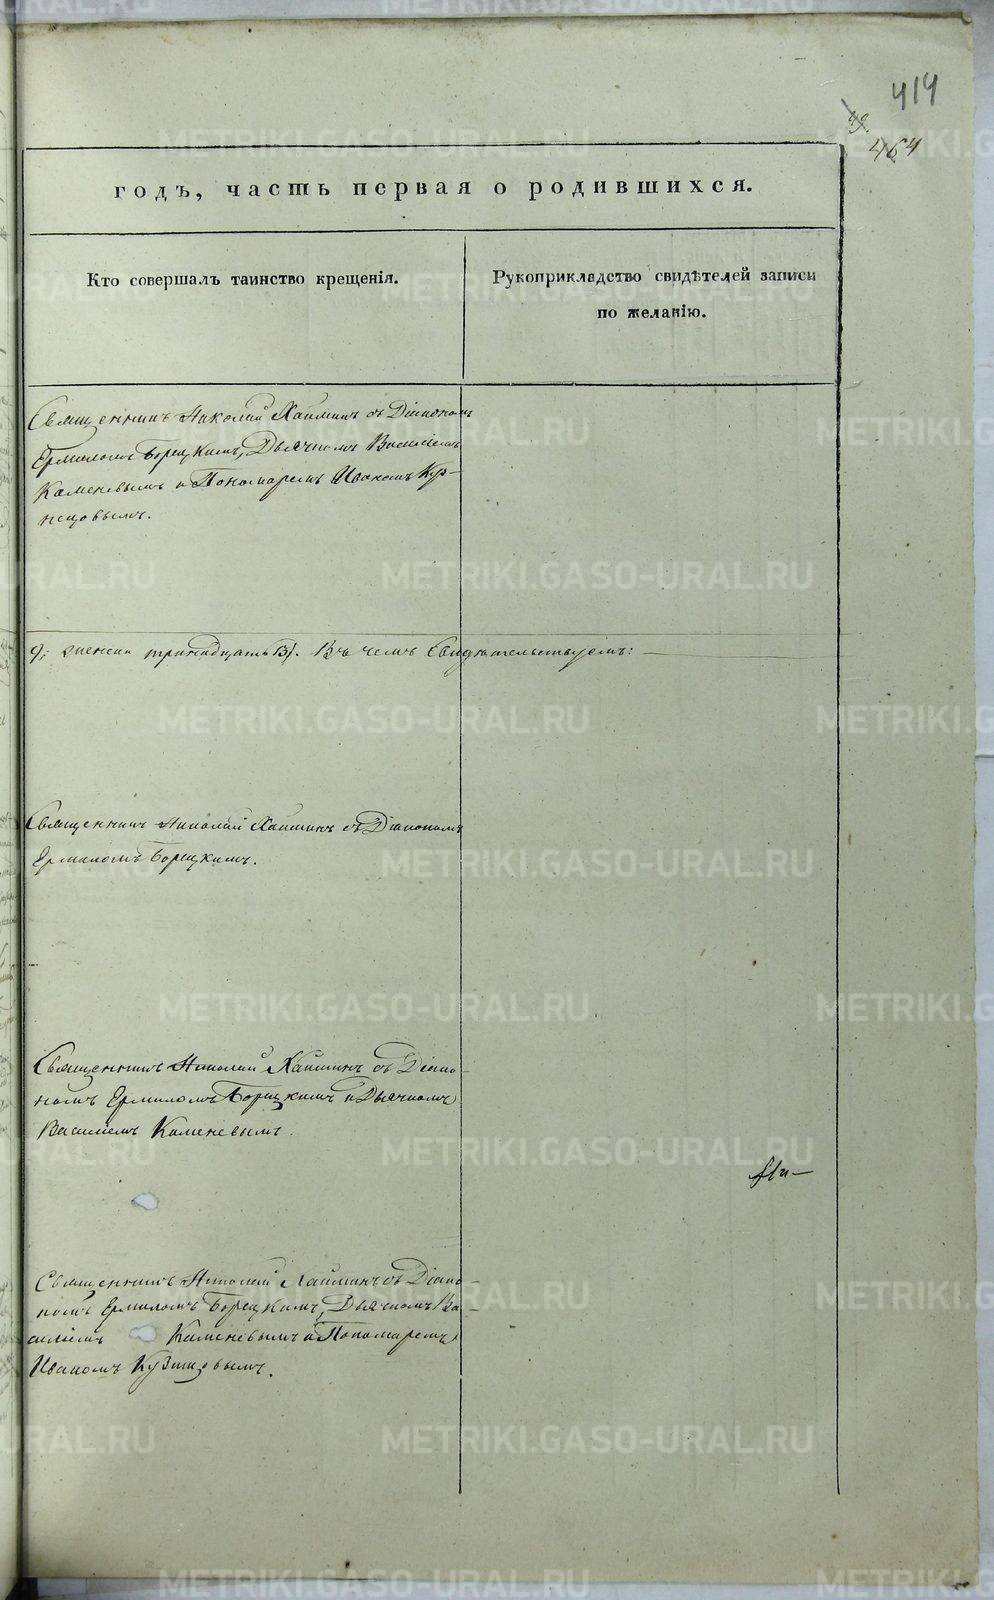 414
49.
464
годъ, часть первая о родившихся.
Кто совершалъ таинство крещенія.
Рукоприкладство свидѣтелей записи
по желанію.
Священникъ Николай Хаминъ съ Діакономъ
Ермиломъ Борецкимъ, Дьячкомъ Василіемъ
Каменевымъ и Пономаремъ Иваномъ Куз-
нецовымъ.
женска тринадцать 13). Въ чемъ Свидѣтельствуемъ:
Священникъ Николай Хаминъ съ Діакономъ
Ермиломъ Борецкимъ.
Священникъ Николай Хаминъ съ Діако-
номъ Ермиломъ Борецкимъ и Дьячкомъ
Василіемъ Каменевымъ.
Священникъ Николай Хаминъ съ Діако-
номъ Ермиломъ Борецкимъ, Дьячкомъ Ва-
силіемъ Каменевымъ и Пономаремъ
Иваномъ Кузнецовымъ.
METRIKI.GASO-URAL.RU